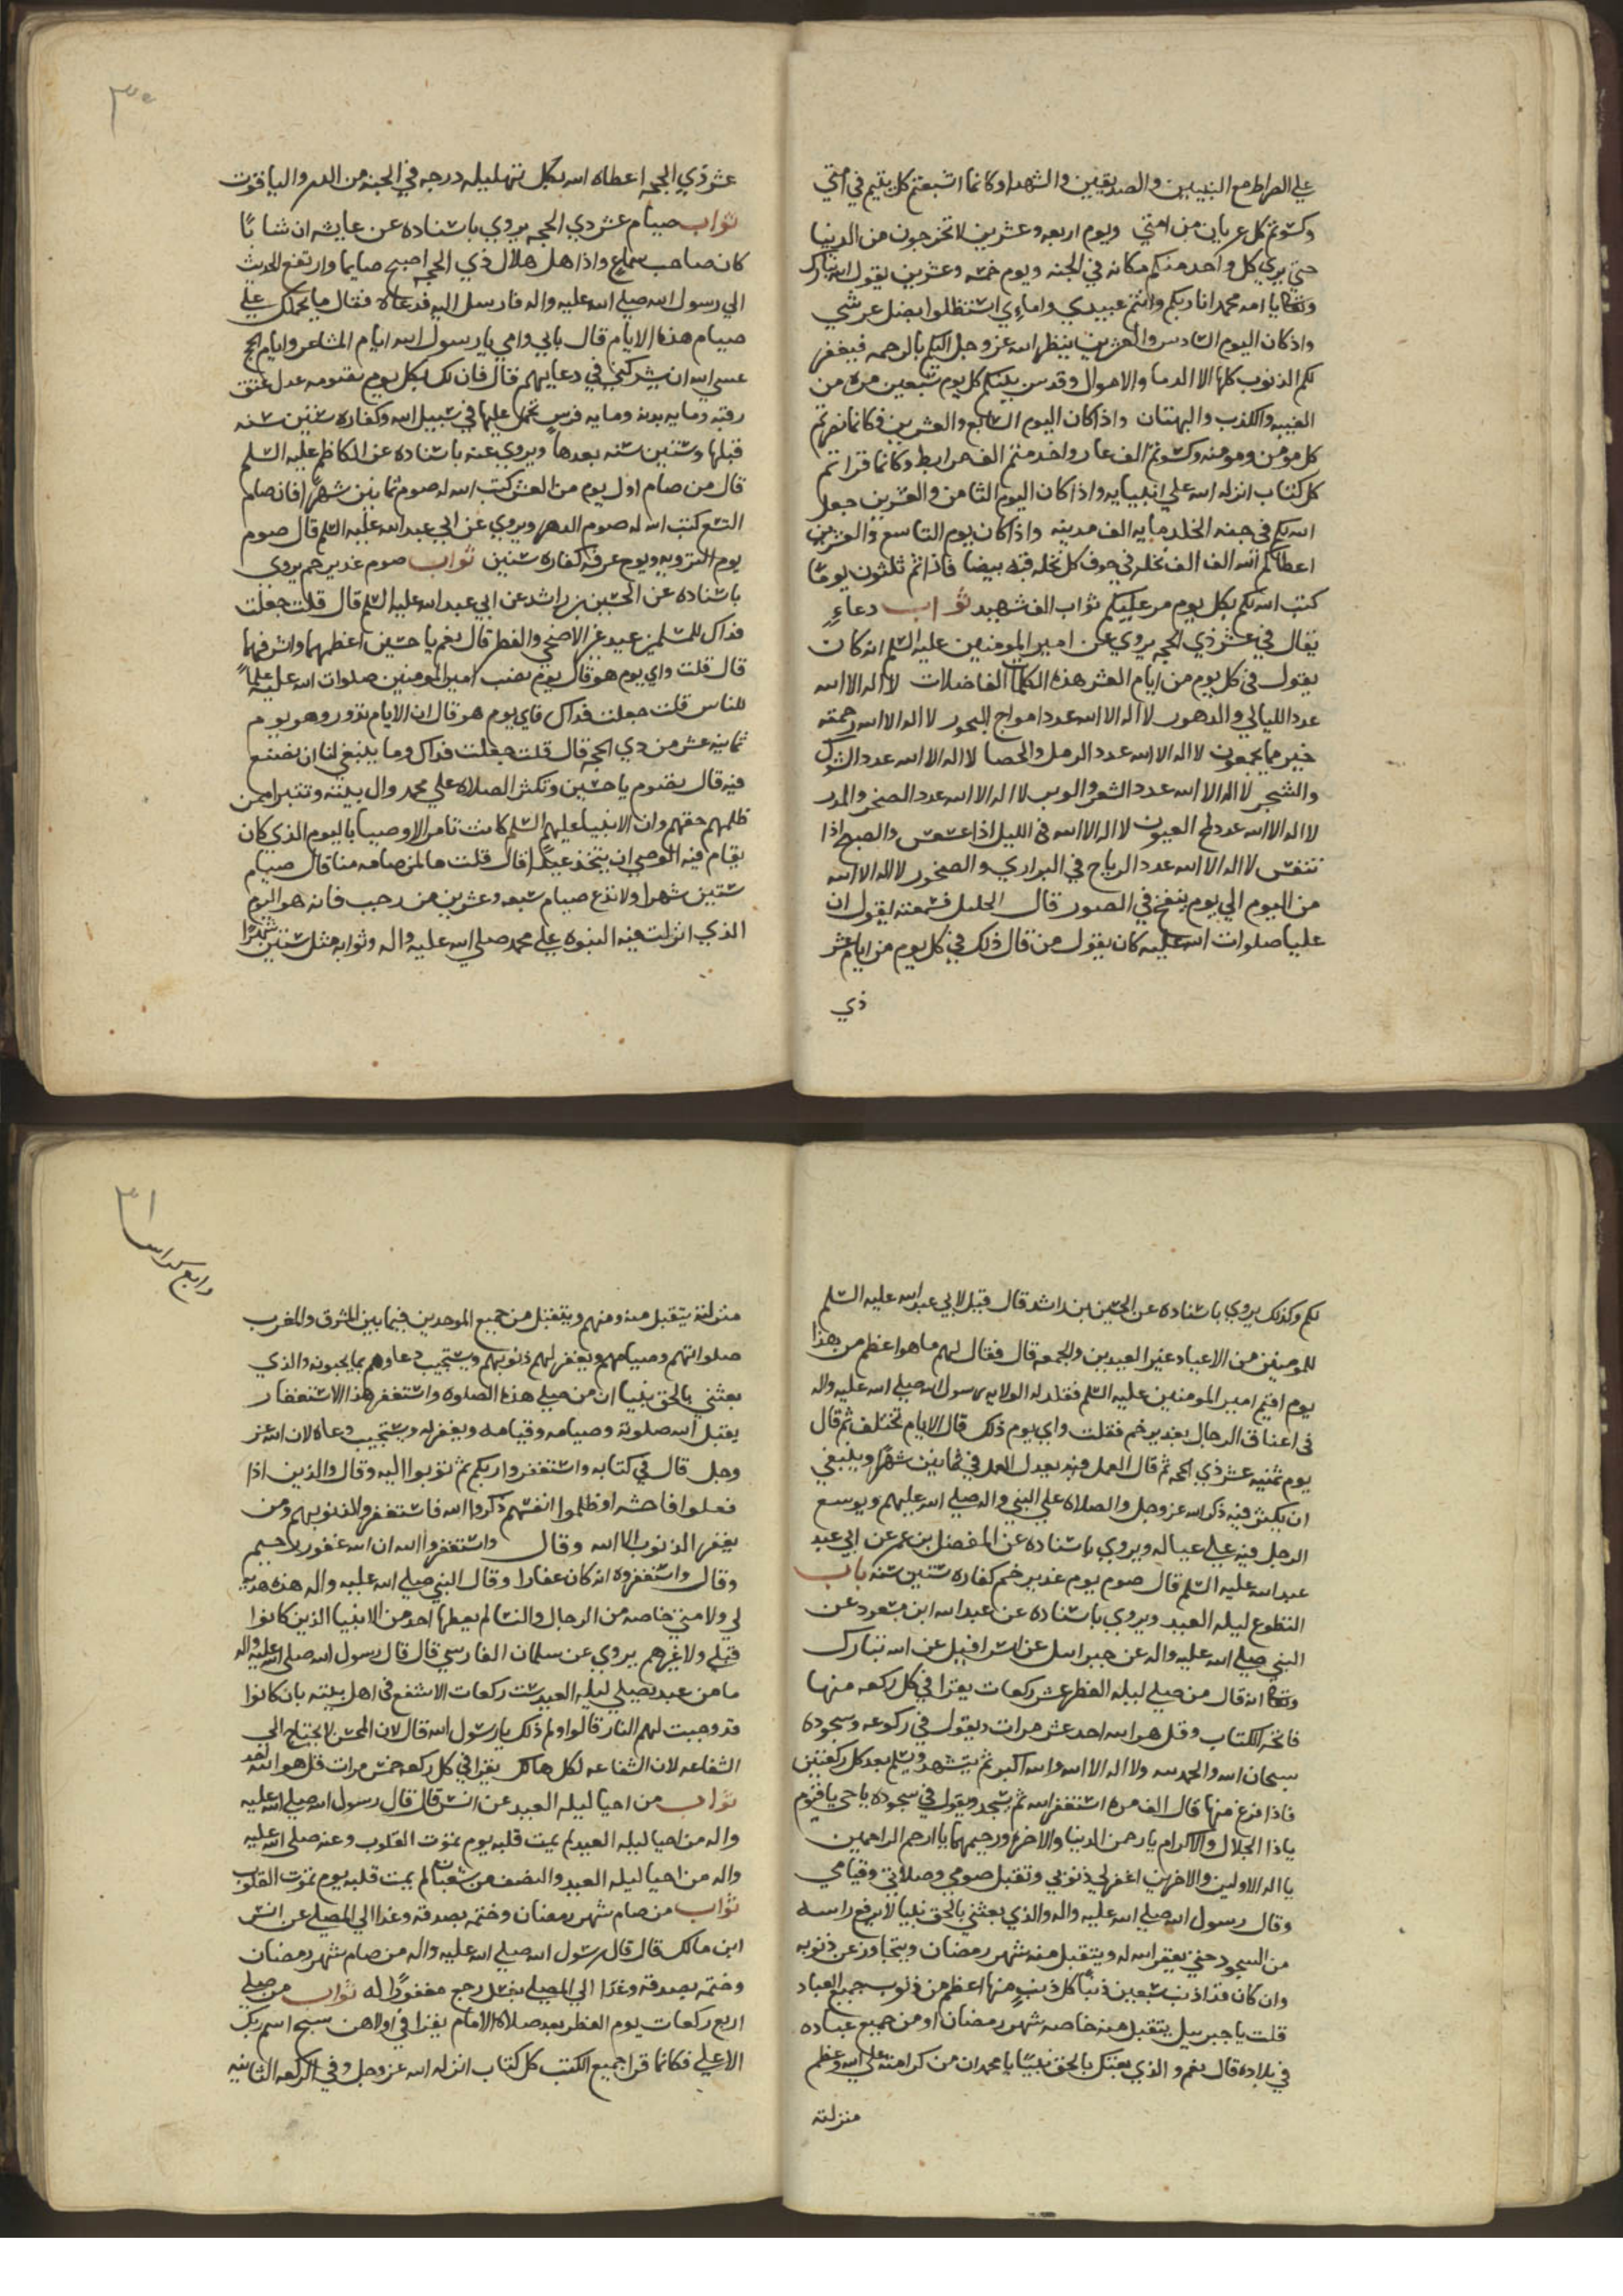 علي الصراط مع النبيين والصديقين والشهدا وكانما اشبعتم كل يتيم في امتي
وكسوتم كل عريان من امتي ويوم اربعه وعشرين لا تخرجون من الدنيا
حتي يري كل واحد منكم مكانه في الجنه ويوم خمسه وعشرين يقول الله تبارك
وتعالي يا امه محمد انا ربكم وانتم عبيدي وامائي استظلوا بظل عرشي
واذ كان اليوم السادس والعشرين ينظر الله عز وجل اليكم بالرحمه فيغفر
لكم الذنوب كلها الا الدما والاموال وقدس بينكم كل يوم سبعين مره من
الغيبه والكذب والبهتان واذا كان اليوم السابع والعشرين فكانما نصرتم
كل مومن ومومنه وكسوتم الف عار واخدمتم الف مرابط وكانما قراتم
كل كتاب انزله الله علي انبيايه واذا كان اليوم الثامن والعشرين جعل
الله لكم في جنه الخلد مايه الف مدينه واذا كان يوم التاسع والعشرين
اعطاكم الله الف الف نخله في جوف كل نخله قبه بيضا فاذا تم ثلثون يوما
كتب الله لكم بكل يوم مر عليكم ثواب الف شهيد ثواب دعاء
يقال في عشر ذي الحجه يروي عن امير المومنين عليه السلم انه كان
يقول في كل يوم من ايام العشر هذه الكلمات الفاضلات لا اله الا الله
عدد الليالي والدهور لا اله الا الله عدد امواج البحور لا اله الا الله رحمته
خير مما يجمعون لا اله الا الله عدد الرمل والحصا لا اله الا الله عدد الشوك
والشجر لا اله الا الله عدد الشعر والوبر لا اله الا الله عدد الصخر والمدر
لا اله الا الله عدد لمح العيون لا اله الا الله في الليل اذا عسعس والصبح اذا
تنفس لا اله الا الله عدد الرياح في البراري والصخور لا اله الا الله
من اليوم الي يوم ينفخ في الصور قال الخليل فسمعته يقول ان
عليا صلوات الله عليه كان يقول من قال ذلك في كل يوم من ايام عشر
ذي
٣٠
عشر ذي الحجه اعطاه الله بكل تهليله درجه في الجنه من الدر والياقوت
ثواب صيام عشر ذي الحجه يروي باسناده عن عايشه ان شابا
كان صاحب سماع واذا هل هلال ذي الحجه اصبح صايما وارتفع الحديث
الي رسول الله صلي الله عليه واله فارسل اليه فدعاه فقال ما يحملك علي
صيام هذه الايام قال بابي وامي يا رسول الله ايام المشاعر وايام الحج
عسي الله ان يشركني في دعايهم قال فان لك بكل يوم تصومه عدل عتق
رقبه ومايه بدنه ومايه فرس تحمل عليها في سبيل الله وكفاره ستين سنه
قبلها وستين سنه بعدها ويروي عنه باسناده عن الكاظم عليه السلم
قال من صام اول يوم من العشر كتب الله له صوم ثمانين شهرا فان صام
التسع كتب الله له صوم الدهر ويروي عن ابي عبد الله عليه السلم قال صوم
يوم الترويه ويوم عرفه كفاره سنين ثواب صوم غدير خم يروي
باسناده عن الحسين بن راشد عن ابي عبد الله عليه السلم قال قلت جعلت
فداك للمسلمين عيد غير الاضحي والفطر قال نعم يا حسين اعظمهما واشرفهما
قال قلت واي يوم هو قال يوم نصب امير المومنين صلوات الله عليه علما
للناس قلت جعلت فداك فاي يوم هو قال ان الايام تدور وهو يوم
ثمانيه عشر من ذي الحجه قال قلت جعلت فداك وما ينبغي لنا ان نصنع
فيه قال تصوم يا حسين وتكثر الصلاه علي محمد وال بيته وتتبرا ممن
ظلمهم حقهم وان الانبيا عليهم السلم كانت تامر الاوصيا باليوم الذي كان
يقام فيه الوصي ان يتخذ عيدا قال قلت ما لمن صامه منا قال صيام
ستين شهرا ولا تدع صيام سبعه وعشرين من رجب فانه هو اليوم
الذي انزلت فيه النبوه علي محمد صلي الله عليه واله وثوابه مثل ستين شهرا
لكم وكذلك يروي باسناده عن الحسين بن راشد قال قيل لابي عبد الله عليه السلم
للمومنين من الاعياد غير العيدين والجمعه قال فقال لهم ما هو اعظم من هذا
يوم اقيم امير المومنين عليه السلم فقلد له الولايه رسول الله صلي الله عليه واله
في اعناق الرجال بغدير خم فقلت واي يوم ذلك قال الايام تختلف ثم قال
يوم ثمنيه عشر ذي الحجه ثم قال العمل فيه يعدل العمل في ثمانين شهرا وينبغي
ان يكثر فيه ذكر الله عز وجل والصلاه علي النبي واله صلي الله عليهم ويوسع
الرجل فيه علي عياله ويروي باسناده عن المفضل بن عمر عن ابي عبد
عبد الله عليه السلم قال صوم يوم غدير خم كفاره ستين سنه باب
التطوع ليله العيد ويروي باسناده عن عبد الله ابن مسعود عن
النبي صلي الله عليه واله عن جبرايل عن اسرافيل عن الله تبارك
وتعالي انه قال من صلي ليله الفطر عشر ركعات يقرا في كل ركعه منها
فاتحه الكتاب وقل هو الله احد عشر مرات ويقول في ركوعه وسجوده
سبحان الله والحمد لله ولا اله الا الله والله اكبر ثم يتشهد ويسلم بعد كل ركعتين
فاذا فرغ منها قال الف مره استغفر الله ثم يسجد ويقول في سجوده يا حي يا قيوم
يا ذا الجلال والاكرام يا رحمن الدنيا والاخره ورحيمهما يا ارحم الراحمين
يا اله الاولين والاخرين اغفر لي ذنوبي وتقبل صومي وصلاتي وقيامي
وقال رسول الله صلي الله عليه واله والذي بعثني بالحق نبيا لا يرفع راسه
من السجود حتي يغفر الله له ويتقبل منه شهر رمضان ويتجاوز عن ذنوبه
وان كان قد اذنب سبعين ذنبا كل ذنب منها اعظم من ذنوب جميع العباد
قلت يا جبرييل يتقبل منه خاصه شهر رمضان او من جميع عباده
في بلاده قال نعم والذي بعثك بالحق نبيا يا محمد ان من كرامته علي الله وعظم
منزلته
٣١
رابع كراس
منزلته يتقبل منه ومنهم ويتقبل من جميع الموحدين فيما بين المشرق والمغرب
صلواتهم وصيامهم ويغفر لهم ذنوبهم ويستجيب دعاوهم بما يحبونه والذي
بعثني بالحق نبيا ان من صلي هذه الصلوه واستغفر هذا الاستغفار
يقبل الله صلوته وصيامه وقيامه ويغفر له ويستجيب دعاه لان الله عز
وجل قال في كتابه واستغفروا ربكم ثم توبوا اليه وقال والذين اذا
فعلوا فاحشه او ظلموا انفسهم ذكروا الله فاستغفروا لذنوبهم ومن
يغفر الذنوب الا الله وقال واستغفروا الله ان الله غفور رحيم
وقال واستغفروه انه كان غفارا وقال النبي صلي الله عليه واله هذه هديه
لي ولامتي خاصه من الرجال والنسا لم يعطها احد من الانبيا الذين كانوا
قبلي ولا غيرهم يروي عن سلمان الفارسي قال قال رسول الله صلي الله عليه واله
ما من عبد يصلي ليله العيد ست ركعات الا شفع في اهل بيته بان كانوا
قد وجبت لهم النار قالوا ولم ذلك يا رسول الله قال لان المحسن لا يحتاج الي
الشفاعه لان الشفاعه لكل هالك يقرا في كل ركعه خمس مرات قل هو الله احد
ثواب من احيا ليله العيد عن انس قال قال رسول الله صلي الله عليه
واله من احيا ليله العيد لم يمت قلبه يوم تموت القلوب وعنه صلي الله عليه
واله من احيا ليله العيد والنصف من شعبان لم يمت قلبه يوم تموت القلوب
ثواب من صام شهر رمضان وختمه بصدقه وغدا الي المصلي عن انس
ابن مالك قال قال رسول الله صلي الله عليه واله من صام شهر رمضان
وختمه بصدقه وغدا الي المصلي بغسل رجع مغفورا له ثواب من صلي
اربع ركعات يوم الفطر بعد صلاه الامام يقرا في اولاهن سبح اسم ربك
الاعلي فكانما قرا جميع الكتب كل كتاب انزله الله عز وجل وفي الركعه الثانيه